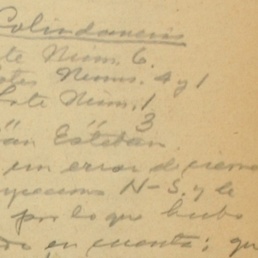 Colindancias
te Núm. 6.
otes Núms. 4 y 1
Lote Núm. 1
" " 3
an Esteban.
un error de cierre
yecciones N-S. y la
por lo que hubo
en cuenta; qu